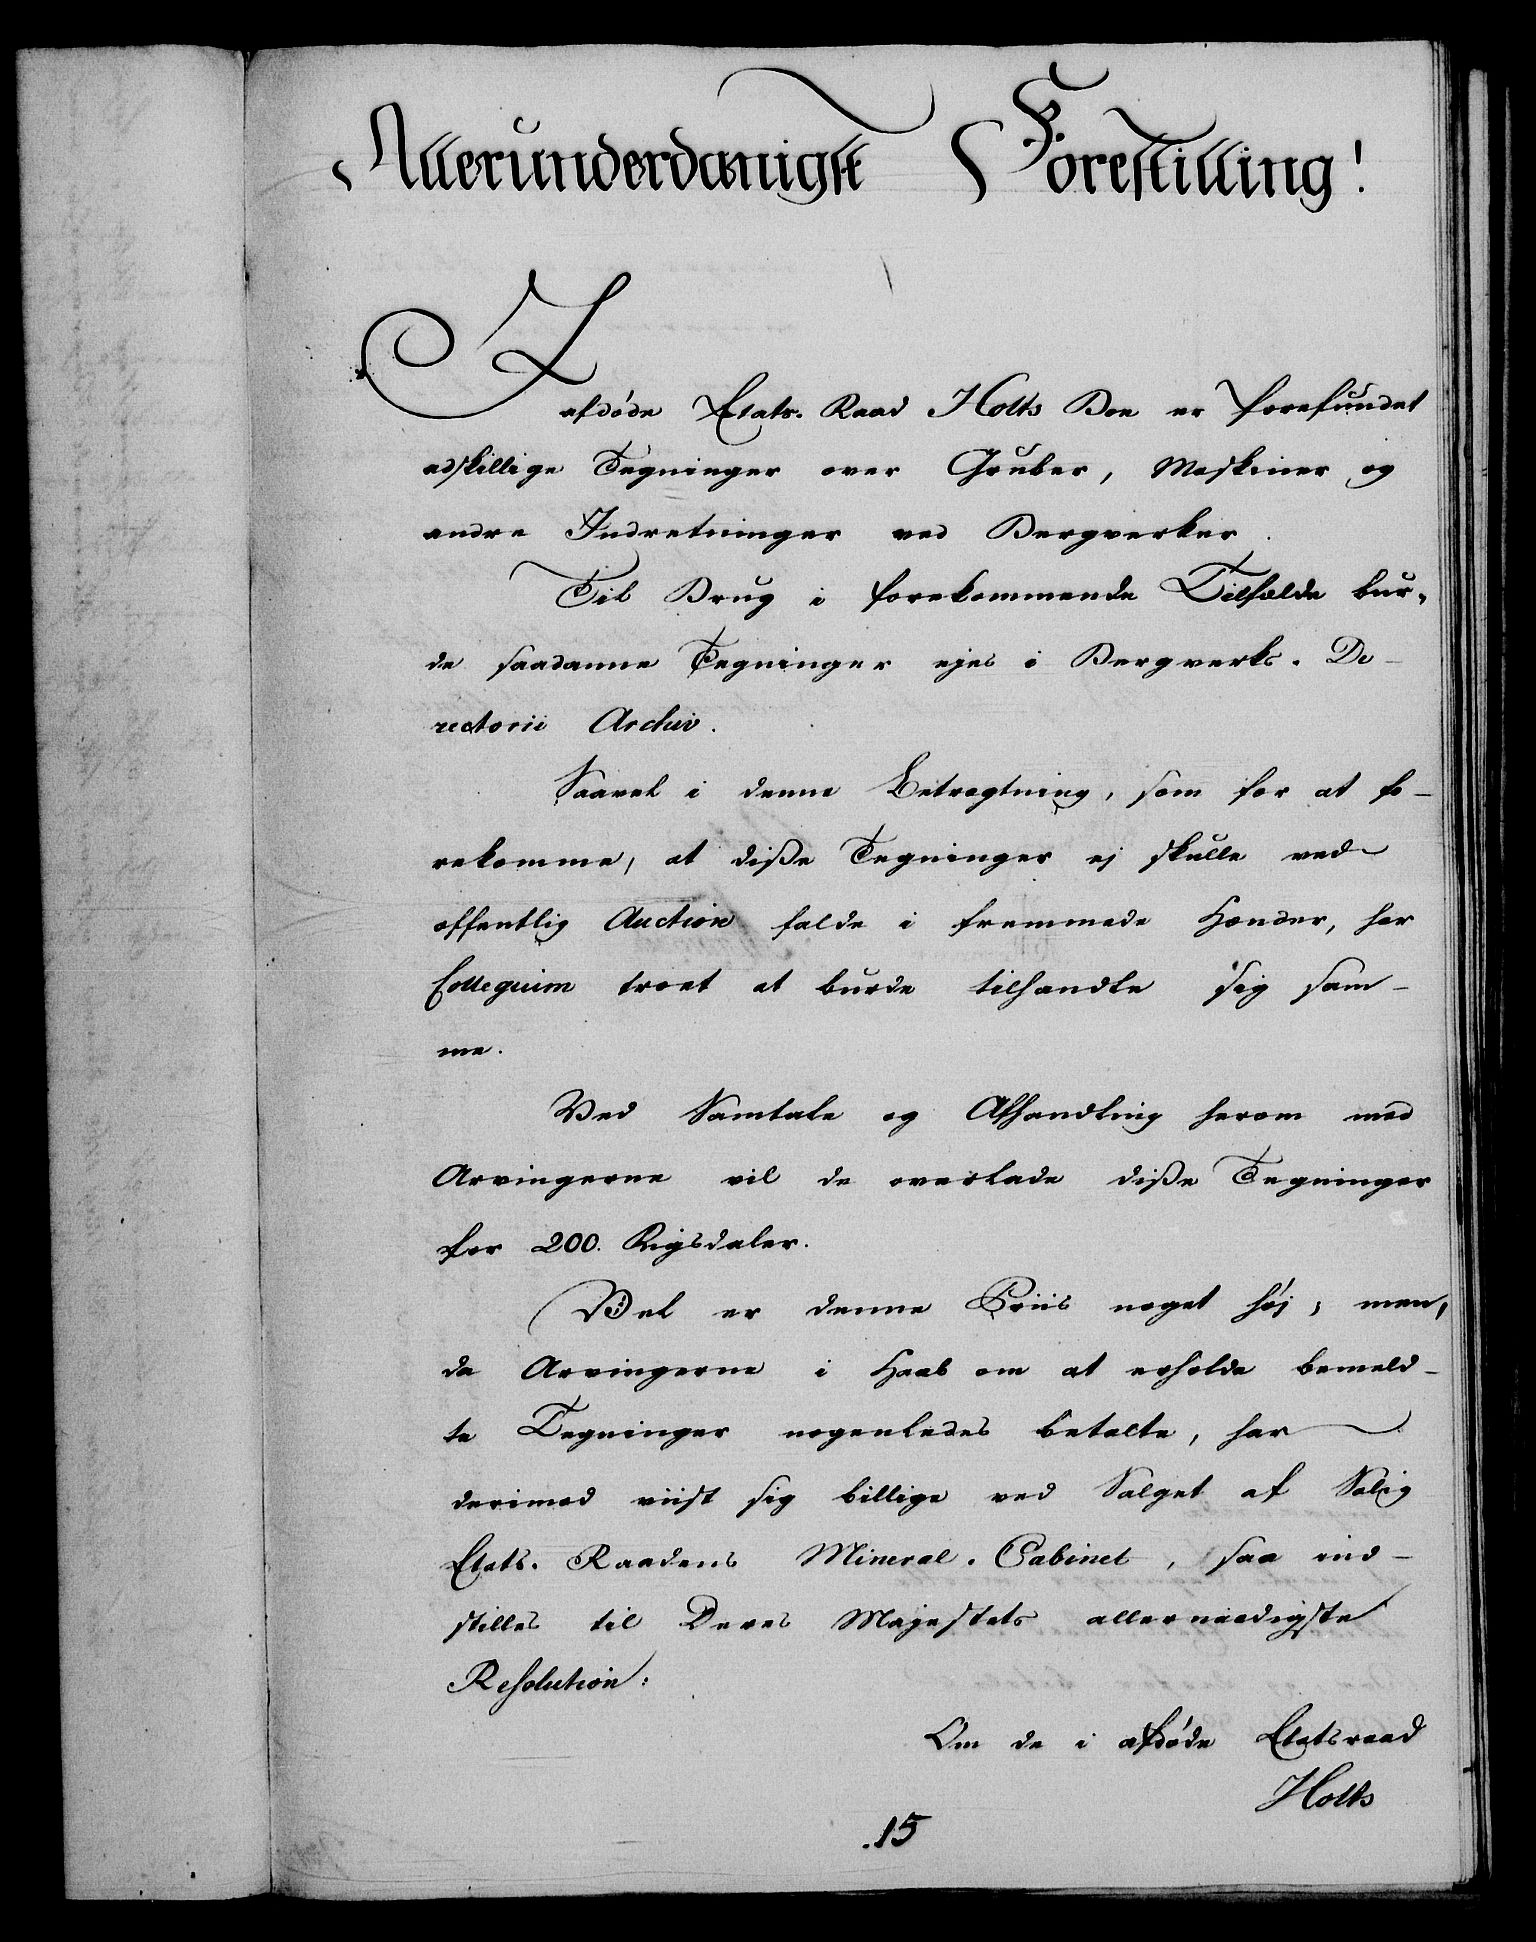 Allerunderdanigst Forestilling!
I
afdøde Etats-Raad Holts Boe er forefundet
adskillige Tegninger over Gruber, Maskiner og
andre Indretninger ved Bergverker.
Til Brug i forekommende Tilfælde bur-
de saadanne Tegninger ejes i Bergverks-Di-
rectorii Archiv.
Saavel i denne Betragtning, som for at fo-
rekomme, at diße Tegninger ej skulle ved
offentlig Auction falde i fremmede Hænder, har
Collegium troet at burde tilhandle sig sam-
me.
Ved Samtale og Afhandling herom med
Arvingerne vil de overlade diße Tegninger
for 200. Rigsdaler.
Vel er denne Priis noget høj; men,
da Arvingerne i Haab om at erholde bemeld-
te Tegninger nogenledes betalte, har
derimod viist sig billige ved Salget af Salig
Etats-Raadens Mineral-Cabinet, saa ind-
stilles til Deres Majestets allernaadigste
Resolution:
Om de i afdøde Etatsraad
Holts
15